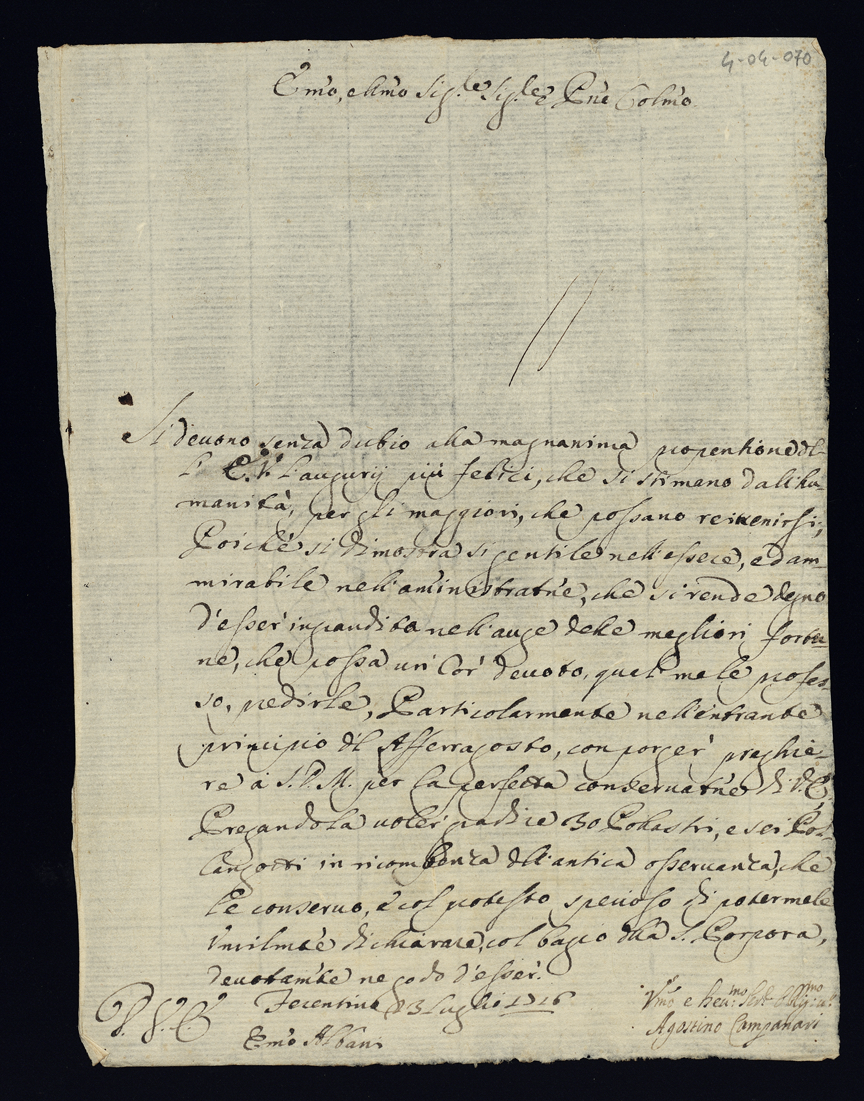 4-04-070
Emo, e Rmo Sig.re Sig.re e Prne Colmo
Si devono senza dubio alla magnanima propentione dl-
l' E.V. l'augurij più felici, che si stimano dall'hu-
manità, per gli maggiori, che possano rinvenirsi;
Poiché si dimostra sì gentile nell'essere, ed am-
mirabile nell'aministratne, che si rende degno
d'esser' ingrandito nell'auge delle megliori fortu-
ne, che possa un' Cor' devoto, qual' me le profes-
so, predirle, Particolarmente nell'entrante
principio dl Afferragosto, con porger' preghie-
re à S.D.M. per la perfetta conservatne di V.E.
Pregandola voler' gradire 30 Pollastri, e sei Pol-
lanzotti in ricompenza dll'antica osservanza, che
le conservo, e col protesto specioso di potermele
Umilmte dichiarare, col bagio dlla S. Porpora,
devotamte ne godo d'esser'.
D. V. E.
Ferentino 23 Luglio 1716
Emo Albani
Umo e Revmo Serv. Obligmo
Agostino Campanari